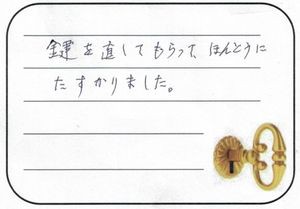 鍵を直してもらって、ほんとうに
たすかりました。